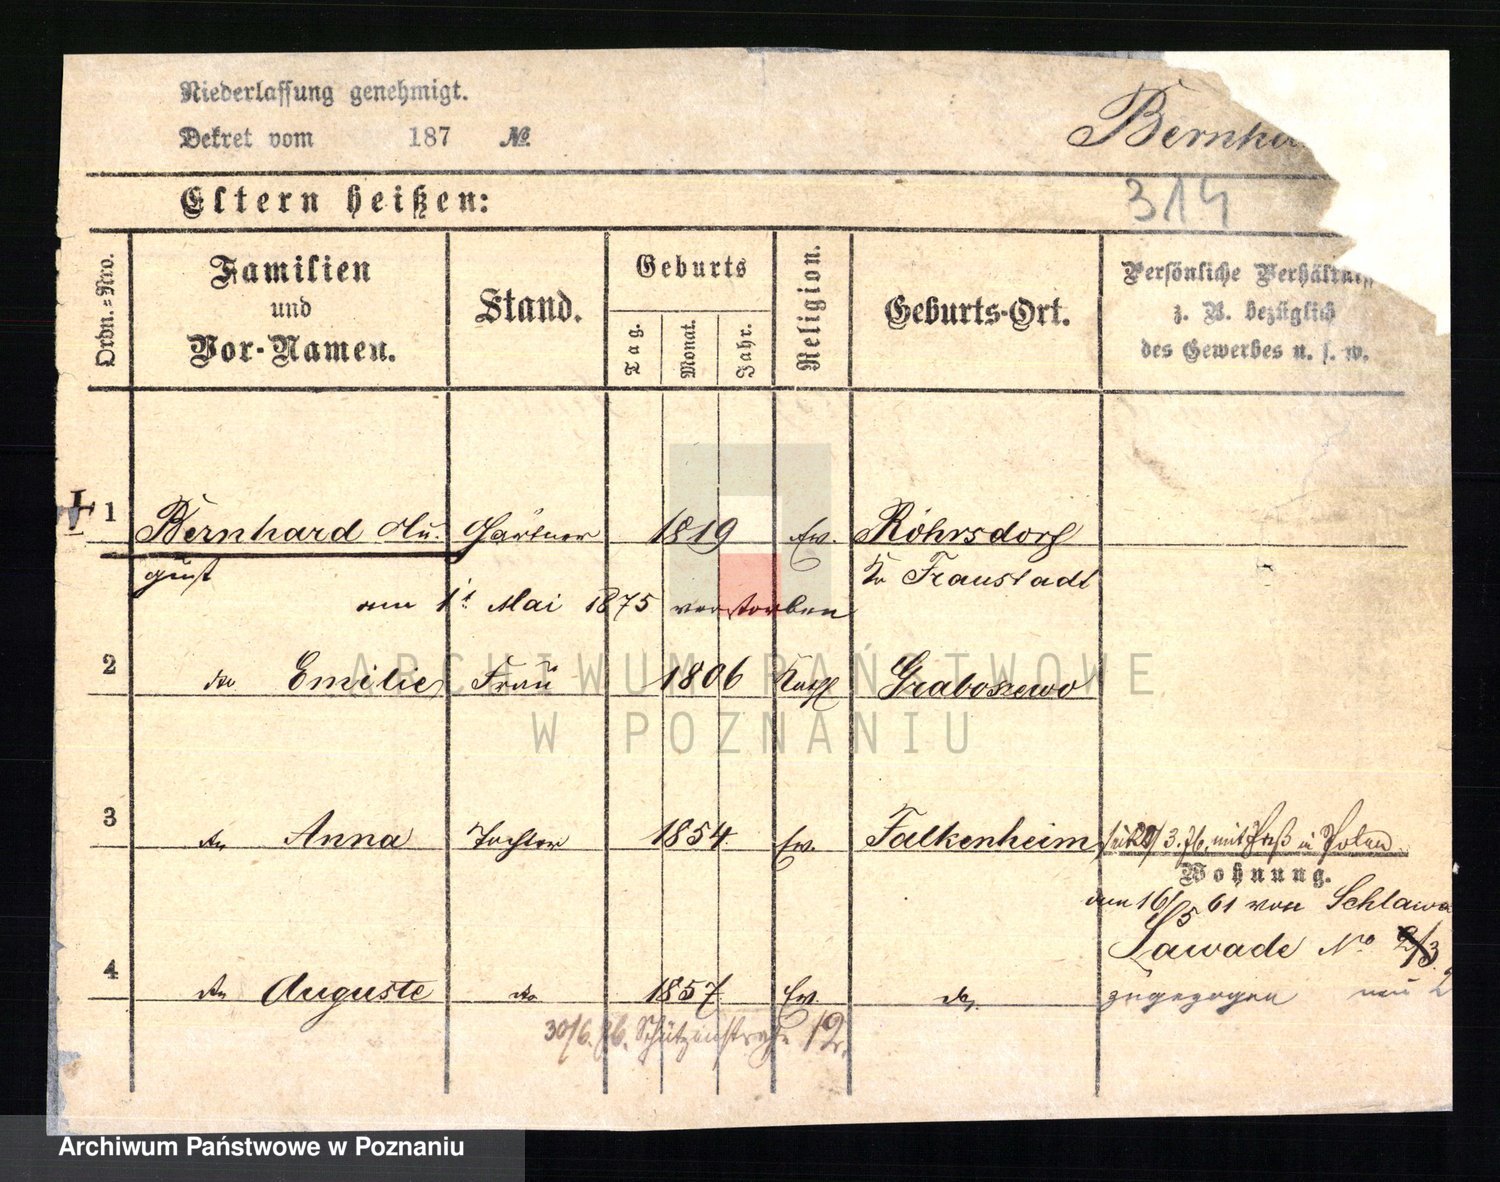 Niederlassung genehmigt.
Dekret vom 187 №
Bernha
Eltern heißen:
314
Ordn.=Nro.
Familien
und
Vor-Namen.
Stand.
Geburts
Tag.
Monat.
Jahr.
Religion.
Geburts-Ort.
Persönliche Verhältniss
z. B. bezüglich
des Gewerbes u. s. w.
1 Bernhard Au= Gärtner 1819 Ev. Röhrsdorf
gust Kr Fraustadt
am 1t Mai 1875 verstorben
2 do Emilie Frau 1806 Kath Graboszewo
ARCHIWUM PAŃSTWOWE
W POZNANIU
3 do Anna Tochter 1854 Ev. Falkenheim seit 29/3.76. mit Paß in Polen
Wohnung.
am 16/5 61 von Schlawa
4 do Auguste do 1857 Ev. do.
Zawade No 2/3.
zugezogen neu 2
30/6.76. Schützenstraße 12.
Archiwum Państwowe w Poznaniu